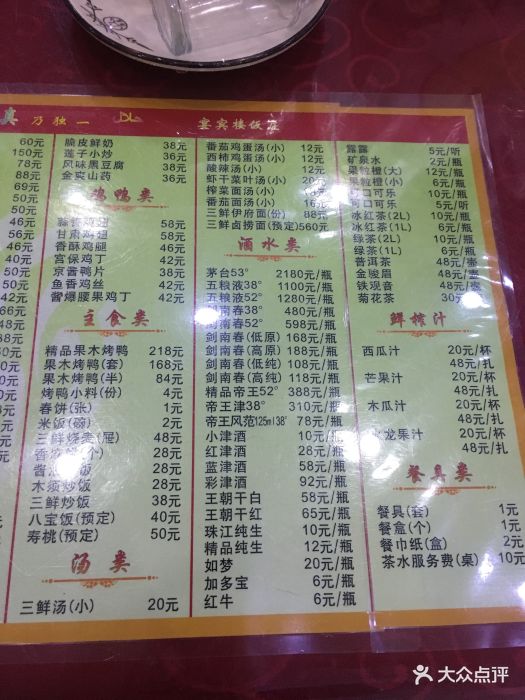 真 乃独一 宴宾楼饭庄
60元
150元
78元
88元
69元
50元
50元
46元
脆皮鲜奶 38元
莲子小炒 36元
风味黑豆腐 38元
金爽山药 36元
鸡鸭类
58元
甘肃鸡翅 58元
香酥鸡腿 46元
宫保鸡丁 42元
京酱鸭片 38元
鱼香鸡丝 42元
酱爆腰果鸡丁 42元
主食类
精品果木烤鸭 218元
果木烤鸭(套) 168元
果木烤鸭(半) 84元
烤鸭小料(份) 4元
春饼(张) 1元
米饭(碗) 2元
三鲜烧卖(屉) 48元
2元
28元
木须炒饭 28元
三鲜炒饭 38元
八宝饭(预定) 40元
寿桃(预定) 50元
汤类
三鲜汤(小) 20元
番茄鸡蛋汤(小) 12元
西柿鸡蛋汤(小) 12元
酸辣汤(小) 16元
虾干菜叶汤(小) 20元
榨菜面汤(小) 12元
番茄面汤(小) 16元
三鲜伊府面(份) 88元
三鲜卤捞面(预定)560元
酒水类
茅台53° 2180元/瓶
五粮液38° 1100元/瓶
五粮液52° 1280元/瓶
剑南春38° 480元/瓶
剑南春52° 598元/瓶
剑南春(低原) 168元/瓶
剑南春(高原) 188元/瓶
剑南春(低纯) 108元/瓶
剑南春(高纯) 118元/瓶
精品帝王52° 388元/瓶
帝王津38° 310元/瓶
帝王风范125ml38° 78元/瓶
小津酒 10元/瓶
红津酒 21元/瓶
蓝津酒 58元/瓶
彩津酒 92元/瓶
王朝干白 58元/瓶
王朝干红 65元/瓶
珠江纯生 10元/瓶
精品纯生 12元/瓶
如梦 20元/瓶
加多宝 6元/瓶
红牛 6元/瓶
露露 5元/听
矿泉水 2元/瓶
果粒橙(大) 12元/瓶
果粒橙(小) 6元/瓶
可口可乐 10元/瓶
可口可乐 5元/听
冰红茶(2L) 10元/瓶
冰红茶(1L) 6元/瓶
绿茶(2L) 10元/瓶
绿茶(1L) 6元/瓶
普洱茶 48元/壶
金骏眉 48元/壶
铁观音 48元/壶
菊花茶 30元/壶
鲜榨汁
西瓜汁 20元/杯
48元/扎
芒果汁 20元/杯
48元/扎
木瓜汁 20元/杯
48元/扎
火龙果汁 20元/杯
48元/扎
餐具类
餐具(套) 1元
餐盒(个) 1元
餐巾纸(盒) 2元
茶水服务费(桌) 10元
大众点评